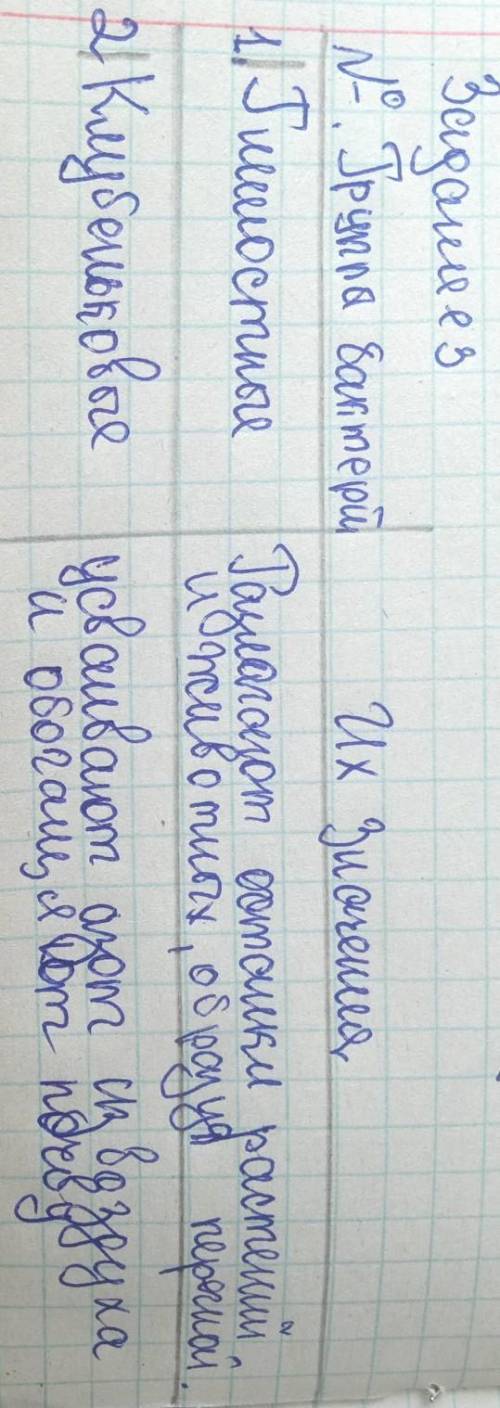 Задание 3
№. Группа бактерий Их значения
1. Гнилостные Разлагают остатки растений
и животных, образуя перегной.
2 Клубеньковые усваивают азот из воздуха
и обогащяют почву